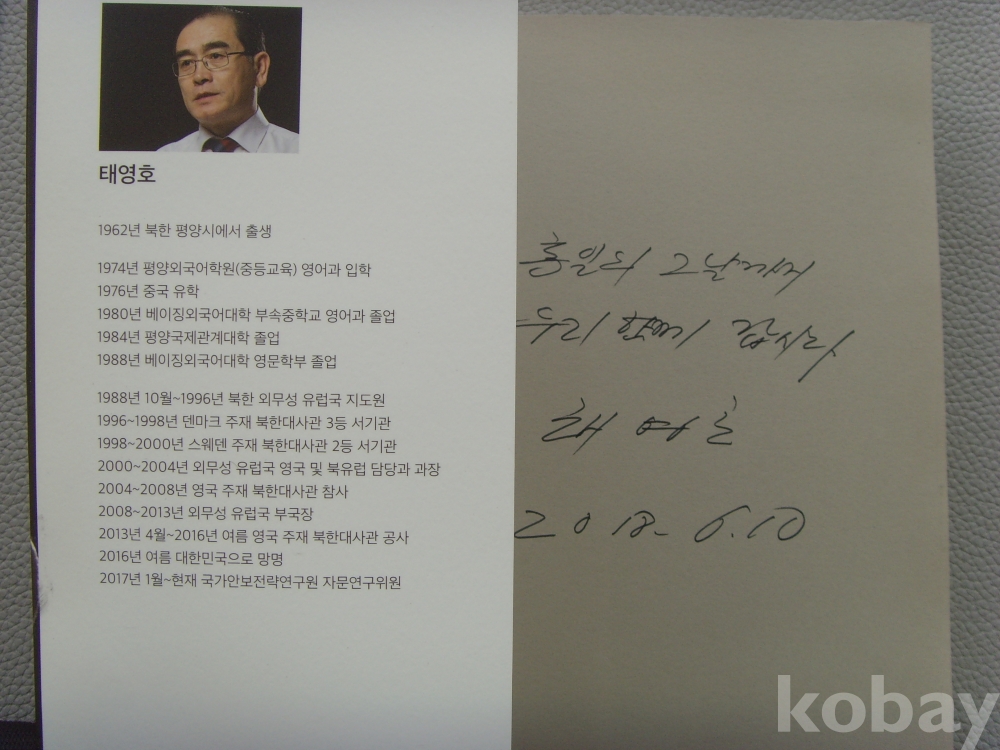 태영호
1962년 북한 평양시에서 출생
1974년 평양외국어학원(중등교육) 영어과 입학
1976년 중국 유학
1980년 베이징외국어대학 부속중학교 영어과 졸업
1984년 평양국제관계대학 졸업
1988년 베이징외국어대학 영문학부 졸업
1988년 10월~1996년 북한 외무성 유럽국 지도원
1996~1998년 덴마크 주재 북한대사관 3등 서기관
1998~2000년 스웨덴 주재 북한대사관 2등 서기관
2000~2004년 외무성 유럽국 영국 및 북유럽 담당과 과장
2004~2008년 영국 주재 북한대사관 참사
2008~2013년 외무성 유럽국 부국장
2013년 4월~2016년 여름 영국 주재 북한대사관 공사
2016년 여름 대한민국으로 망명
2017년 1월~현재 국가안보전략연구원 자문연구위원
통일의 그날까지
우리 함께 갑시다
태영호
2018. 6.10
kobay